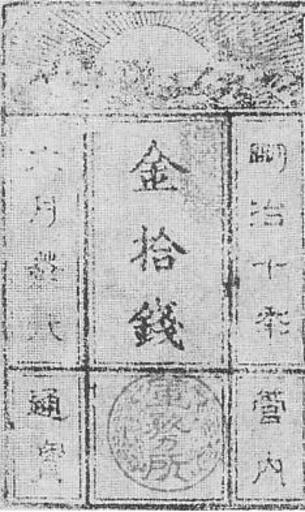 明治十年
管内
金拾錢
軍務所
六月發行
通寳